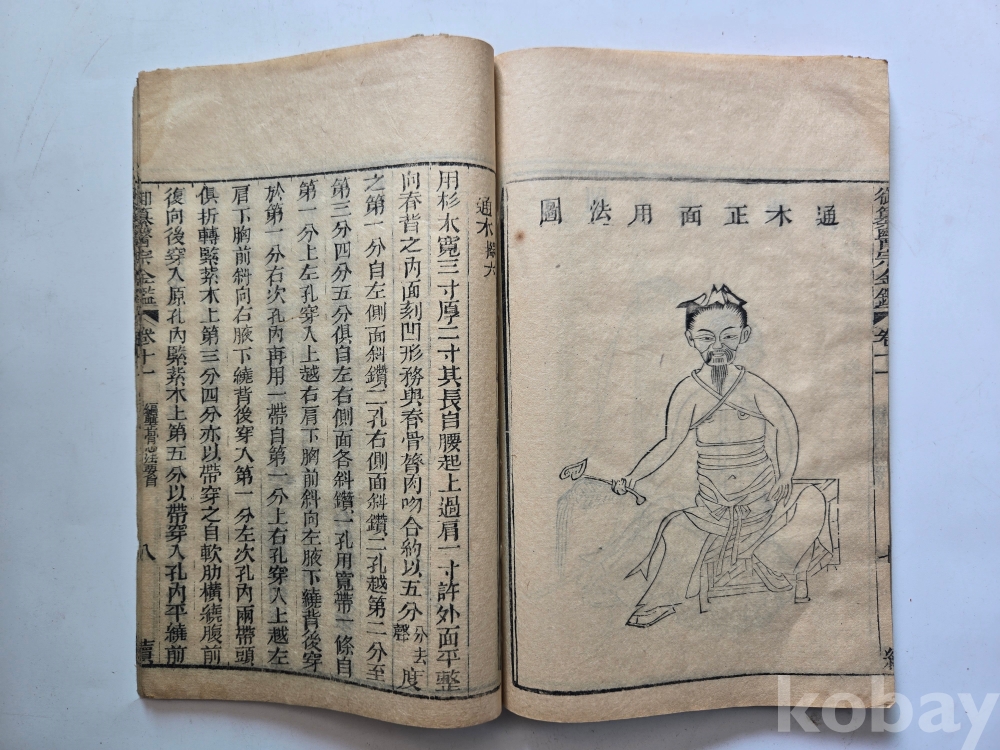 御纂醫宗金鑑 卷十一
通木正面用法圖
通木
用杉木寬三寸厚二寸其長自腰起上過肩一寸許外面平整
向脊背之內面刻凹形務與脊骨膂肉吻合約以五分分去聲度
之第一分自左側面斜鑽二孔右側面斜鑽二孔越第二分至
第三分四分五分俱自左右側面各斜鑽一孔用寬帶一條自
第一分上左孔穿入上越右肩下胸前斜向左腋下繞背後穿
於第一分右次孔內再用一帶自第一分上右孔穿入上越左
肩下胸前斜向右腋下繞背後穿入第一分左次孔內兩帶頭
俱折轉緊紮木上第三分四分亦以帶穿之自軟肋橫繞腹前
復向後穿入原孔內緊紮木上第五分以帶穿入孔內平繞前
御纂醫宗金鑑 卷十一 八 續
kobay